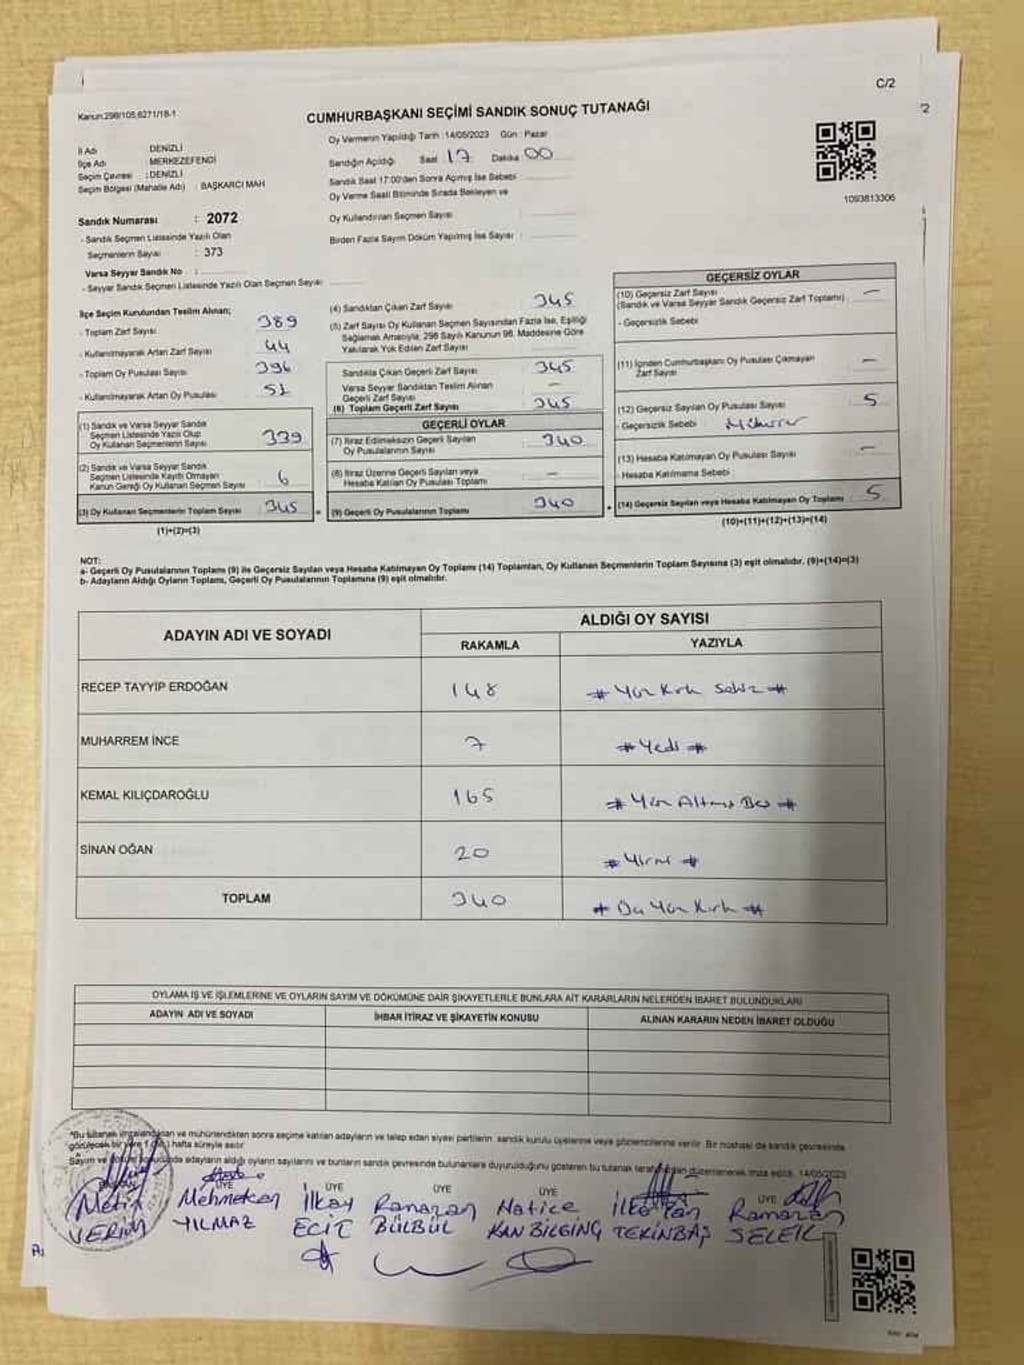 C/2
Kanun:298/105,6271/18-1
CUMHURBAŞKANI SEÇİMİ SANDIK SONUÇ TUTANAĞI
Oy Vermenin Yapıldığı Tarih :14/05/2023 Gün : Pazar
İl Adı DENİZLİ
İlçe Adı : MERKEZEFENDİ
Seçim Çevresi : DENİZLİ
Seçim Bölgesi (Mahalle Adı) : BAŞKARCI MAH
Sandığın Açıldığı Saat 17 Dakika 00
Sandık Saat 17:00'den Sonra Açılmış İse Sebebi
Oy Verme Saati Bitiminde Sırada Bekleyen ve
Oy Kullandırılan Seçmen Sayısı
Birden Fazla Sayım Döküm Yapılmış İse Sayısı :
1093813306
Sandık Numarası : 2072
- Sandık Seçmen Listesinde Yazılı Olan
Seçmenlerin Sayısı : 373
Varsa Seyyar Sandık No :
- Seyyar Sandık Seçmen Listesinde Yazılı Olan Seçmen Sayısı
İlçe Seçim Kurulundan Teslim Alınan;
- Toplam Zarf Sayısı 389
- Kullanılmayarak Artan Zarf Sayısı 44
- Toplam Oy Pusulası Sayısı 396
- Kullanılmayarak Artan Oy Pusulası 51
(1) Sandık ve Varsa Seyyar Sandık
Seçmen Listesinde Yazılı Olup
Oy Kullanan Seçmenlerin Sayısı 339
(2) Sandık ve Varsa Seyyar Sandık
Seçmen Listesinde Kayıtlı Olmayan
Kanun Gereği Oy Kullanan Seçmen Sayısı 6
(3) Oy Kullanan Seçmenlerin Toplam Sayısı 345
(1)+(2)=(3)
(4) Sandıktan Çıkan Zarf Sayısı 345
(5) Zarf Sayısı Oy Kullanan Seçmen Sayısından Fazla İse, Eşitliği
Sağlamak Amacıyla, 298 Sayılı Kanunun 98. Maddesine Göre
Yakılarak Yok Edilen Zarf Sayısı
Sandıkta Çıkan Geçerli Zarf Sayısı 345
Varsa Seyyar Sandıktan Teslim Alınan
Geçerli Zarf Sayısı –
(6) Toplam Geçerli Zarf Sayısı 345
GEÇERLİ OYLAR
(7) İtiraz Edilmeksizin Geçerli Sayılan
Oy Pusulalarının Sayısı 340
(8) İtiraz Üzerine Geçerli Sayılan veya
Hesaba Katılan Oy Pusulası Toplamı –
(9) Geçerli Oy Pusulalarının Toplamı 340
GEÇERSİZ OYLAR
(10) Geçersiz Zarf Sayısı –
(Sandık ve Varsa Seyyar Sandık Geçersiz Zarf Toplamı)
- Geçersizlik Sebebi
(11) İçinden Cumhurbaşkanı Oy Pusulası Çıkmayan
Zarf Sayısı –
(12) Geçersiz Sayılan Oy Pusulası Sayısı 5
- Geçersizlik Sebebi
(13) Hesaba Katılmayan Oy Pusulası Sayısı –
- Hesaba Katılmama Sebebi
(14) Geçersiz Sayılan veya Hesaba Katılmayan Oy Toplamı 5
(10)+(11)+(12)+(13)=(14)
NOT:
a- Geçerli Oy Pusulalarının Toplamı (9) ile Geçersiz Sayılan veya Hesaba Katılmayan Oy Toplamı (14) Toplamları, Oy Kullanan Seçmenlerin Toplam Sayısına (3) eşit olmalıdır. (9)+(14)=(3)
b- Adayların Aldığı Oyların Toplamı, Geçerli Oy Pusulalarının Toplamına (9) eşit olmalıdır.
ADAYIN ADI VE SOYADI
ALDIĞI OY SAYISI
RAKAMLA YAZIYLA
RECEP TAYYİP ERDOĞAN 148 # Yüz Kırk Sekiz #
MUHARREM İNCE 7 # Yedi #
KEMAL KILIÇDAROĞLU 165 # Yüz Altmış Beş #
SİNAN OĞAN 20 # Yirmi #
TOPLAM 340 # Üç Yüz Kırk #
OYLAMA İŞ VE İŞLEMLERİNE VE OYLARIN SAYIM VE DÖKÜMÜNE DAİR ŞİKAYETLERLE BUNLARA AİT KARARLARIN NELERDEN İBARET BULUNDUKLARI
ADAYIN ADI VE SOYADI İHBAR İTİRAZ VE ŞİKAYETİN KONUSU ALINAN KARARIN NEDEN İBARET OLDUĞU
*Bu tutanak imzalandıktan ve mühürlendikten sonra seçime katılan adayların ve talep eden siyasi partilerin sandık kurulu üyelerine veya gözlemcilerine verilir. Bir nüshası da sandık çevresinde
görülecek bir yere 1 (bir) hafta süreyle asılır.
Sayım ve döküm sonucunda adayların aldığı oyların sayılarını ve bunların sandık çevresinde bulunanlara duyurulduğunu gösteren bu tutanak tarafımızdan düzenlenerek imza edildi. 14/05/2023
ÜYE ÜYE ÜYE ÜYE ÜYE
Metin Mehmetcan İlkay Ramazan Hatice Ramazan
YILMAZ ECİT BÜLBÜL KAN BİLGİNG TEKİNBAŞ